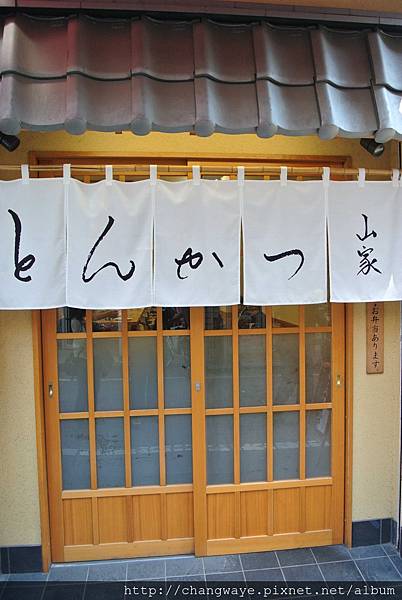 とんかつ
山家
お弁当あります
http://changwaye.pixnet.net/album